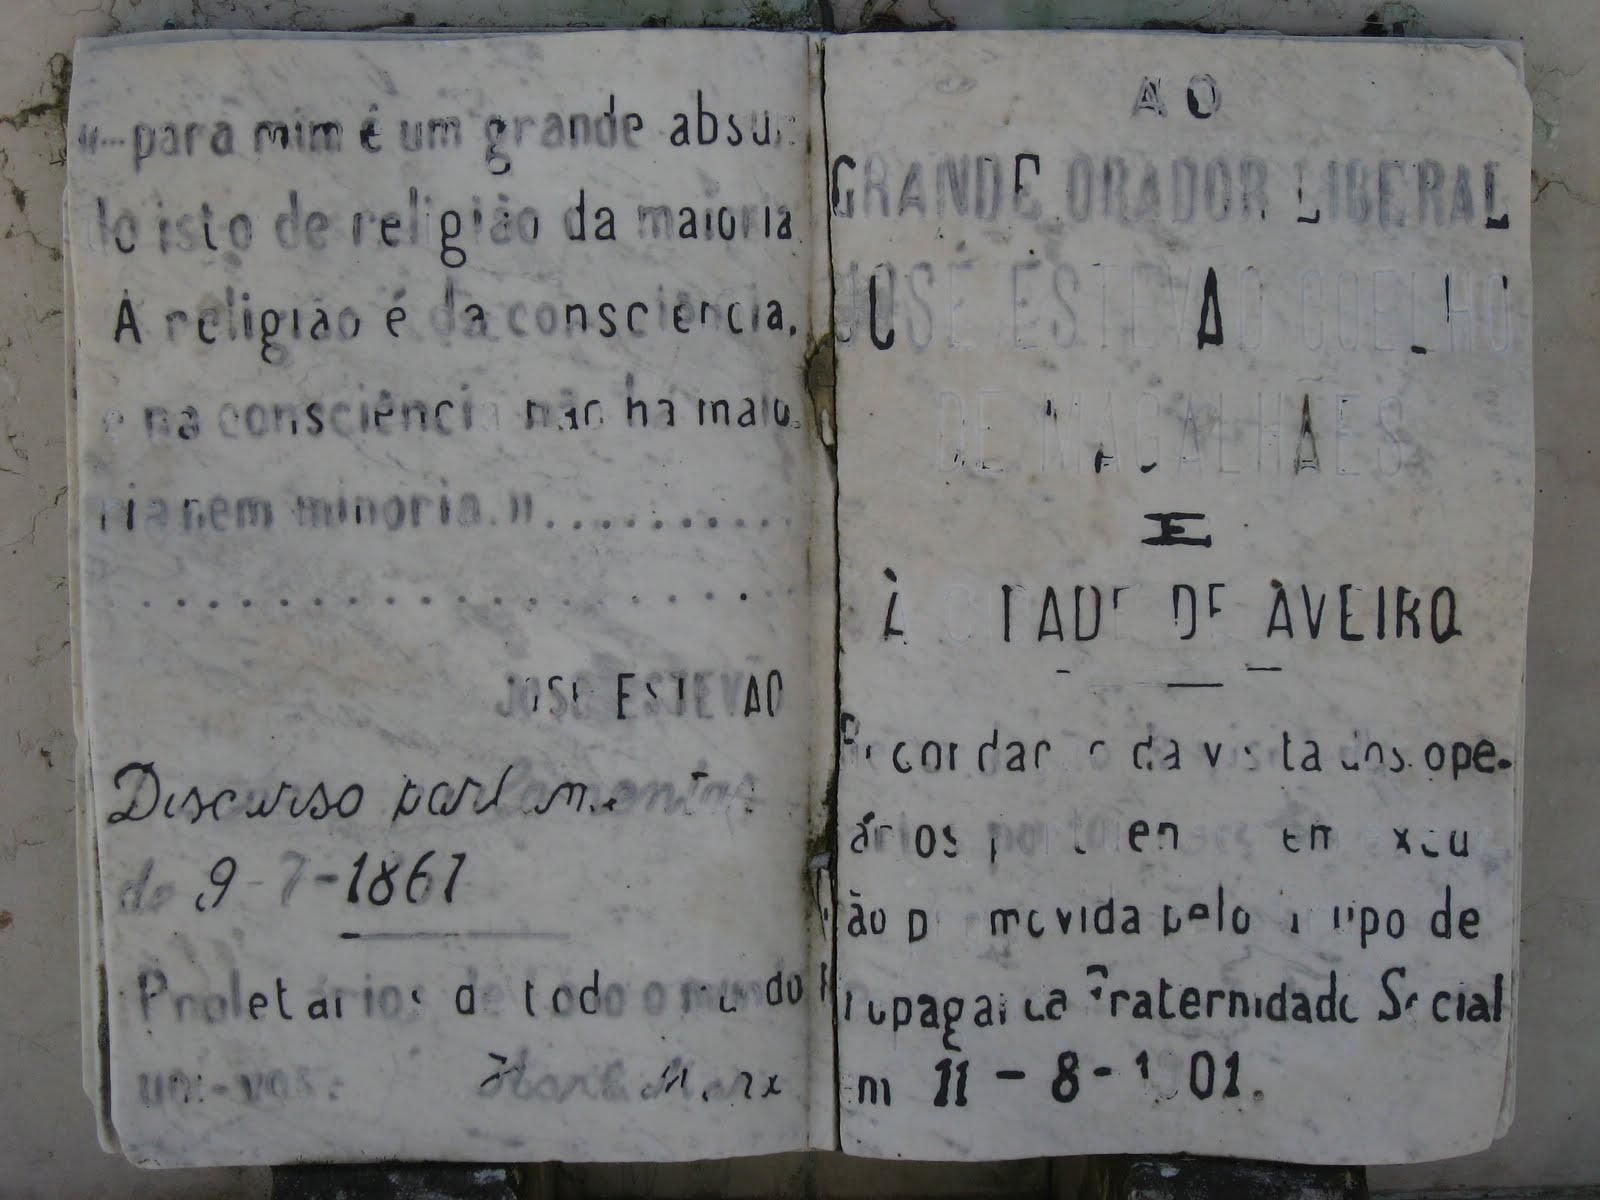 «...para mim é um grande absur-
do isto de religião da maioria.
A religião é da consciência,
e na consciência não há maio-
ria nem minoria.»...........
......................
JOSÉ ESTEVÃO
Discurso parlamentar
de 9-7-1861
Proletários de todo o mundo
uni-vos. Karl Marx
AO
GRANDE ORADOR LIBERAL
JOSÉ ESTEVÃO COELHO
DE MAGALHÃES
E
À CIDADE DE AVEIRO
Recordação da visita dos ope-
rários portuenses em excur-
ão promovida pelo grupo de
Propaganda Fraternidade Social
em 11-8-1901.